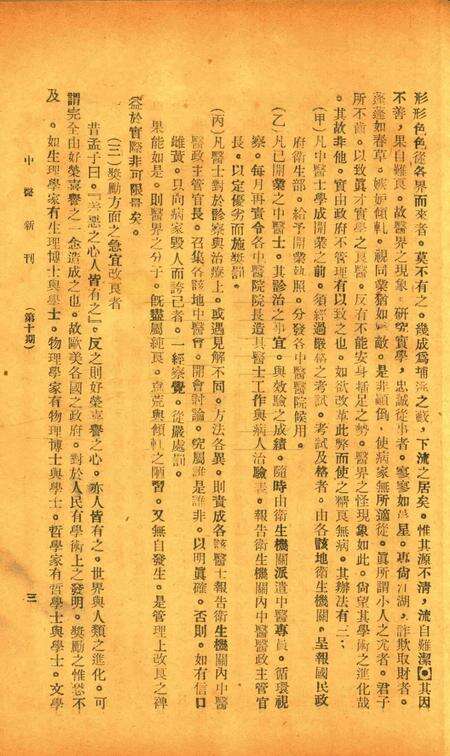 形形色色從各界而來者。莫不有之。幾成爲逋逃之藪，下流之居矣。惟其源不清，流自難潔。其因
不善，果自難良。故醫界之現象。研究實學，忠誠從事者。寥寥如晨星。專尙江湖，詐欺取財者。
蓬蓬如春草。嫉妬傾軋。視同業猶如寇敵。是非顚倒。使病家無所適從。眞所謂小人之尤者。君子
所不齒。以致眞才實學之良醫。反有不能安身插足之勢。醫界之怪現象如此。尙望其學術之進化哉
。其故非他。實由政府不管理有以致之也。如欲改革此弊而使之精良無病。其辦法有二；
(甲)凡中醫士學成開業之前。須經過嚴格之考試。考試及格者。由各該地衛生機關。呈報國民政
府衛生部。給予開業執照。分發各中醫醫院候用。
(乙)凡已開業之中醫士。其診治之事宜。與效驗之成績。隨時由衛生機關派遣中醫專員。循環視
察。每月再責令各中醫院院長造具醫士工作與病人治驗表。報告衛生機關內中醫醫政主管官
長。以定優劣而施獎罰。
(丙)凡醫士對於診察與治療上。或遇見解不同。方法各異。則責成各該醫士報告衛生機關內中醫
醫政主管官長。召集各該地中醫會。開會討論。究屬誰是誰非。以明眞確。否則。如有信口
雌黃。只向病家毀人而誇己者。一經察覺。從嚴處罰。
果能如是。則醫界之分子。旣盡屬純良。意荒與傾軋之陋習。又無自發生。是管理上改良之裨
益於實醫非可限量矣。
(三)獎勵方面之急宜改良者
昔孟子曰。『羞惡之心人皆有之』。反之則好榮喜譽之心。亦人皆有之。世界與人類之進化。可
謂完全由好榮喜譽之一念造成之也。故歐美各國之政府。對於人民有學術上之發明。獎勵之惟恐不
及。如生理學家有生理博士與學士。物理學家有物理博士與學士。哲學家有哲學士與學士。文學
中醫新刊 (第十期) 三